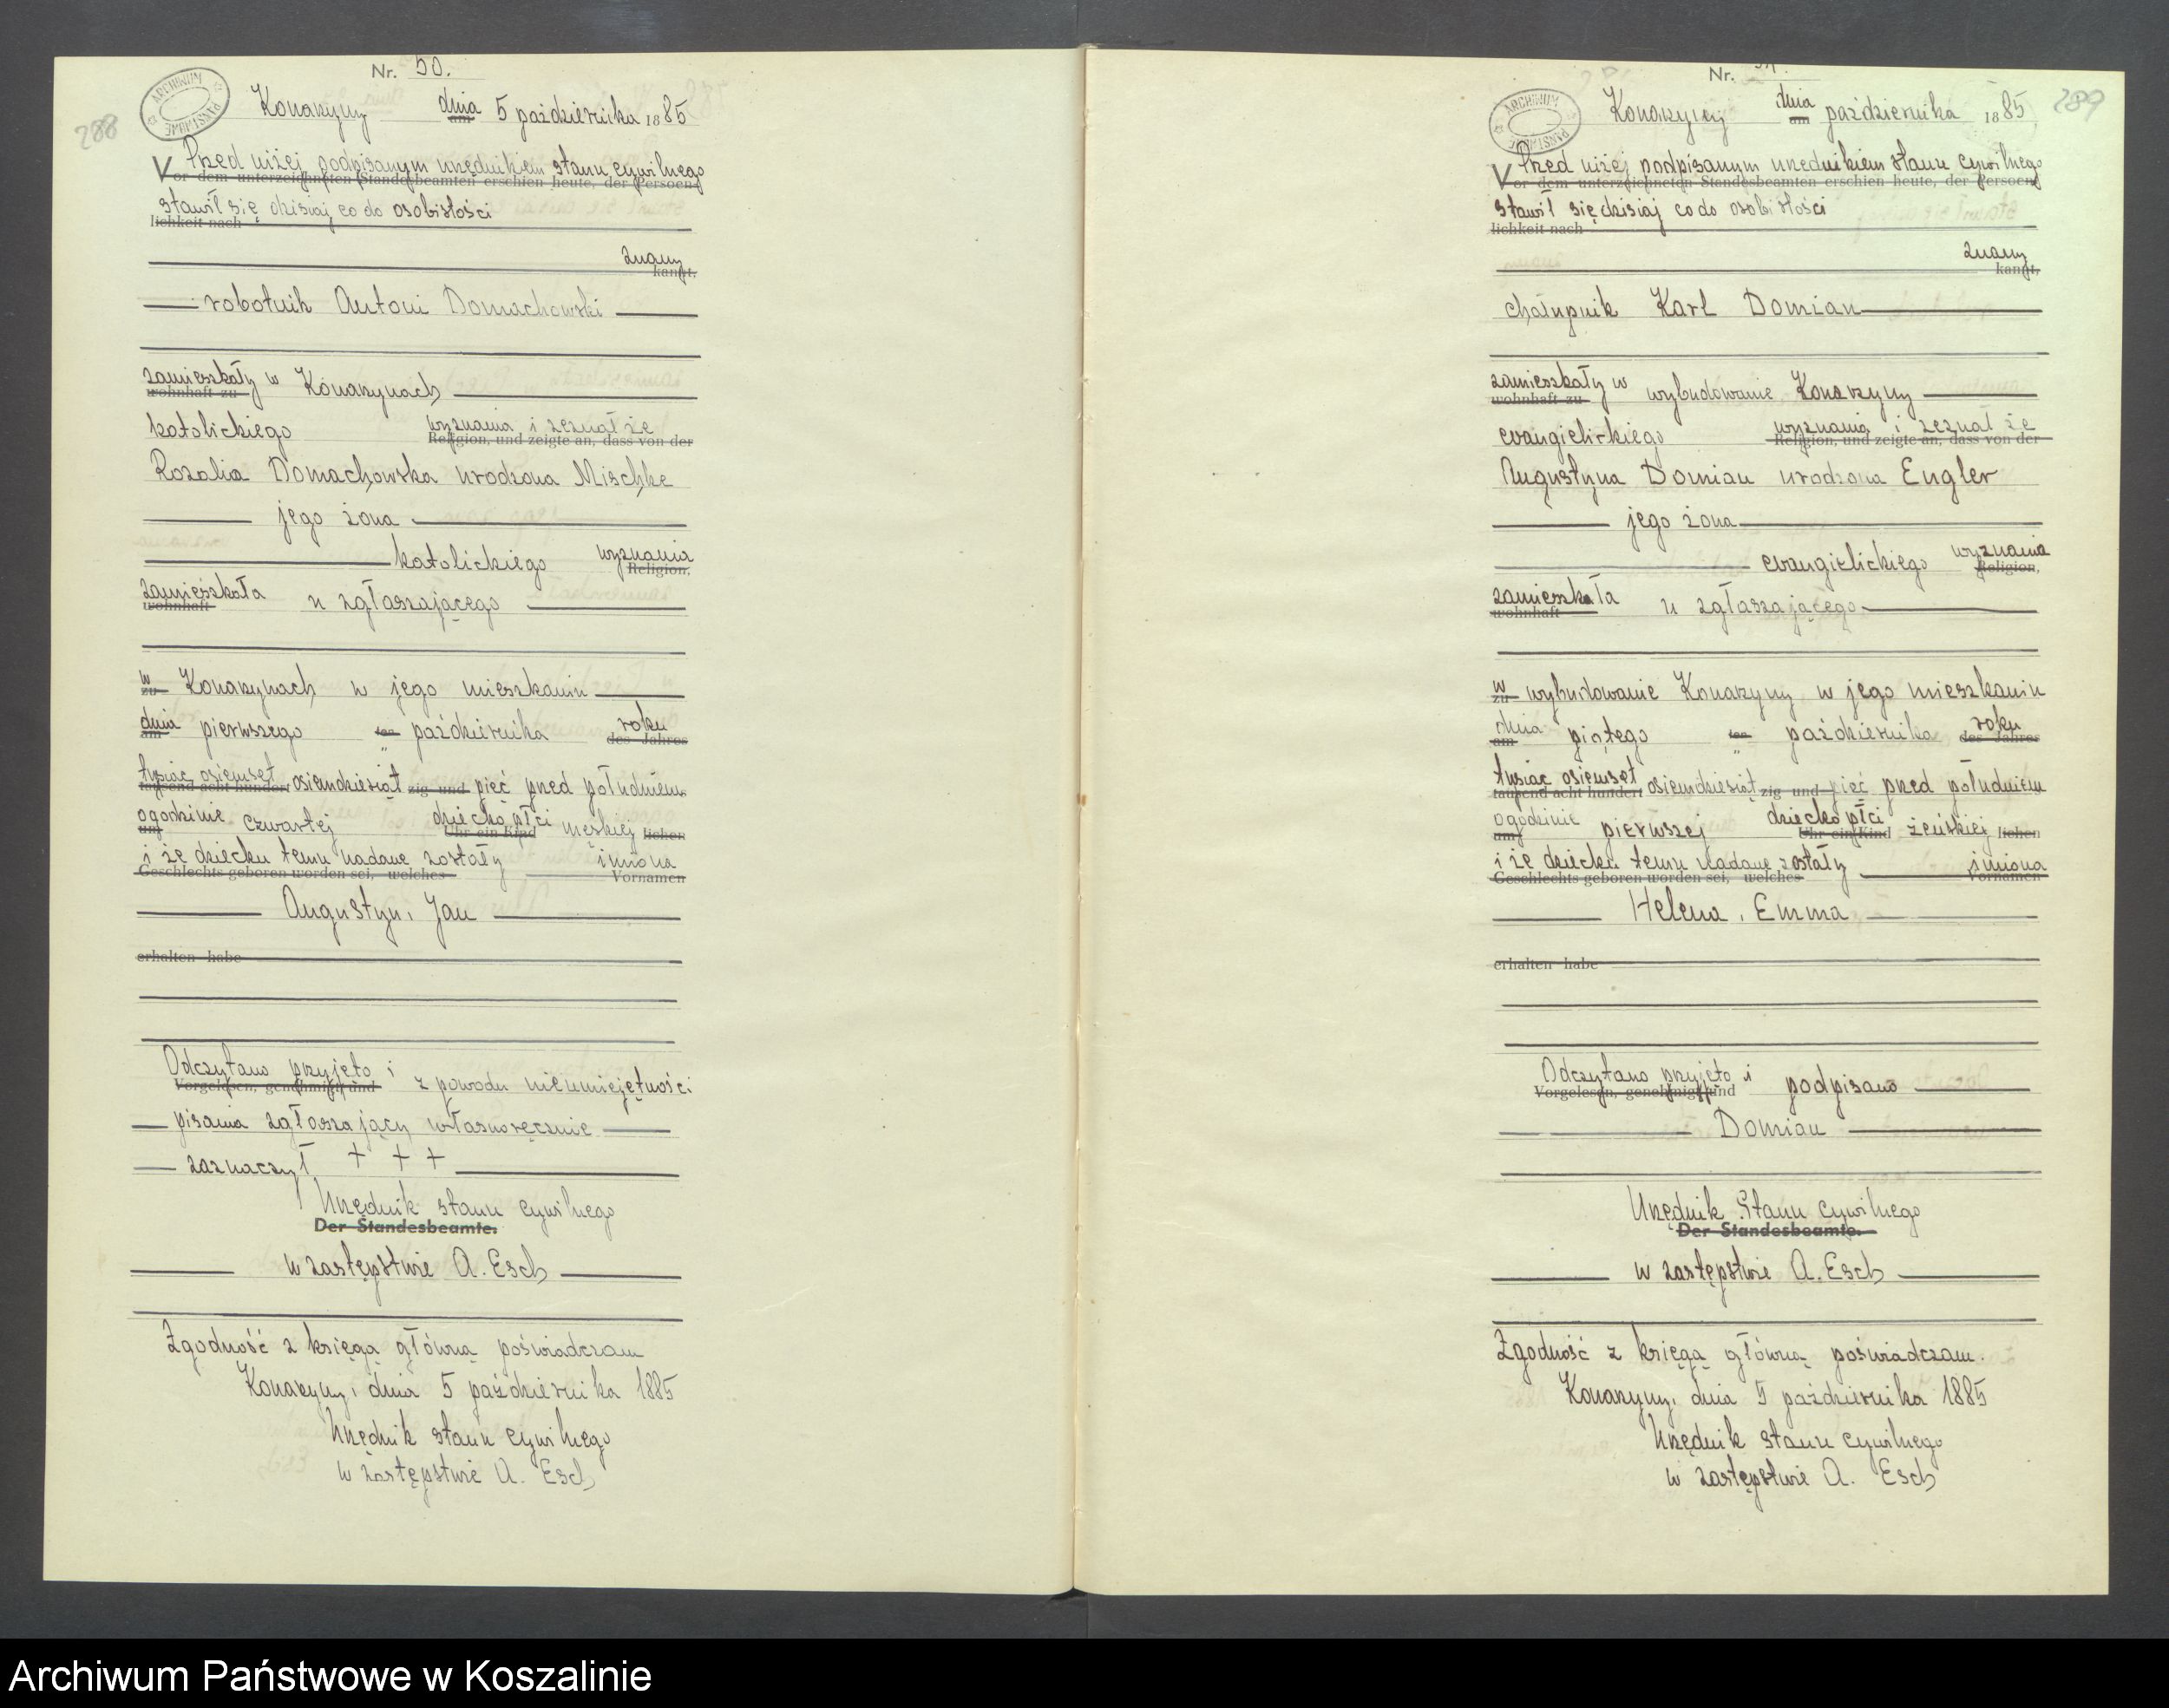 Nr. 50.
ARCHIWUM PAŃSTWOWE
288
Konarzyny dnia am 5 października 1885
Przed niżej podpisanym urzędnikiem stanu cywilnego
Vor dem unterzeichneten Standesbeamten erschien heute, der Persoen-
stawił się dzisiaj co do osobistości
lichkeit nach
znany
kannt,
robotnik Antoni Domachowski
zamieszkały w Konarzynach
wohnhaft zu
katolickiego wyznania i zeznał że
Religion, und zeigte an, dass von der
Rozalia Domachowska urodzona Mischke
jego żona
katolickiego wyznania
Religion,
zamieszkała u zgłaszającego
wohnhaft
w Konarzynach w jego mieszkaniu
zu
dnia pierwszego października roku
am ten des Jahres
tysiąc osiemset osiemdziesiąt pięć przed południem
tausend acht hundert zig und
o godzinie czwartej dziecko płci męskiej
um Uhr ein Kind lichen
i że dziecku temu nadane zostały imiona
Geschlechts geboren worden sei, welches Vornamen
Augustyn, Jan
erhalten habe
Odczytano przyjęto i z powodu nieumiejętności
Vorgelesen, genehmigt und
pisania zgłaszający własnoręcznie
zaznaczył + + +
Urzędnik stanu cywilnego
Der Standesbeamte.
w zastępstwie A. Esch
Zgodność z księgą główną poświadczam
Konarzyny, dnia 5 października 1885
Urzędnik stanu cywilnego
w zastępstwie A. Esch
Nr. 51.
ARCHIWUM PAŃSTWOWE
289
Konarzyny dnia am października 1885
Przed niżej podpisanym urzędnikiem stanu cywilnego
Vor dem unterzeichneten Standesbeamten erschien heute, der Persoen-
stawił się dzisiaj co do osobistości
lichkeit nach
znany
kannt,
chałupnik Karl Domian
zamieszkały w wybudowanie Konarzyny
wohnhaft zu
ewangielickiego wyznania i zeznał że
Religion, und zeigte an, dass von der
Augustyna Domian urodzona Engler
jego żona
ewangielickiego wyznania
Religion,
zamieszkała u zgłaszającego
wohnhaft
w wybudowanie Konarzyny w jego mieszkaniu
zu
dnia piątego października roku
am ten des Jahres
tysiąc osiemset osiemdziesiąt pięć przed południem
tausend acht hundert zig und
o godzinie pierwszej dziecko płci żeńskiej
um Uhr ein Kind lichen
i że dziecku temu nadane zostały imiona
Geschlechts geboren worden sei, welches Vornamen
Helena, Emma
erhalten habe
Odczytano przyjęto i podpisano
Vorgelesen, genehmigt und
Domian
Urzędnik Stanu cywilnego
Der Standesbeamte.
w zastępstwie A. Esch
Zgodność z księgą główną poświadczam.
Konarzyny, dnia 5 października 1885
Urzędnik stanu cywilnego
w zastępstwie A. Esch
Archiwum Państwowe w Koszalinie